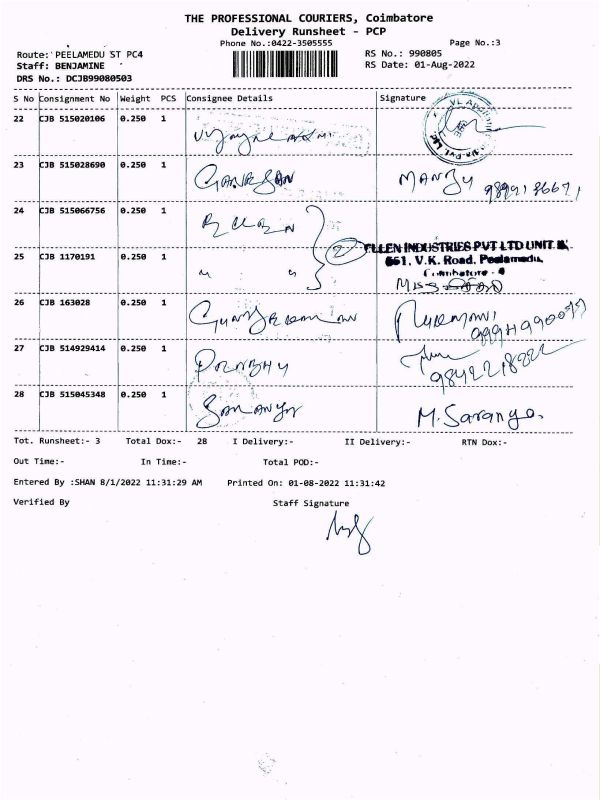 THE PROFESSIONAL COURIERS, Coimbatore
Delivery Runsheet - PCP
Phone No.:0422-3505555
Page No.:3
Route: PEELAMEDU ST PC4
RS No.: 990805
Staff: BENJAMINE
RS Date: 01-Aug-2022
DRS No.: DCJB99080503
S No Consignment No Weight PCS Consignee Details Signature
22 CJB 515020106 0.250 1
23 CJB 515028690 0.250 1 GANESAN MANJU
24 CJB 515066756 0.250 1
2 ELLEN INDUSTRIES PVT LTD UNIT II
25 CJB 1170191 0.250 1 " " 651, V.K. Road, Peelamedu,
Coimbatore - 4
26 CJB 163028 0.250 1
27 CJB 514929414 0.250 1 PRABHU
9842218222
28 CJB 515045348 0.250 1 SARANYA M. Saranya.
Tot. Runsheet:- 3 Total Dox:- 28 I Delivery:- II Delivery:- RTN Dox:-
Out Time:- In Time:- Total POD:-
Entered By :SHAN 8/1/2022 11:31:29 AM Printed On: 01-08-2022 11:31:42
Verified By Staff Signature